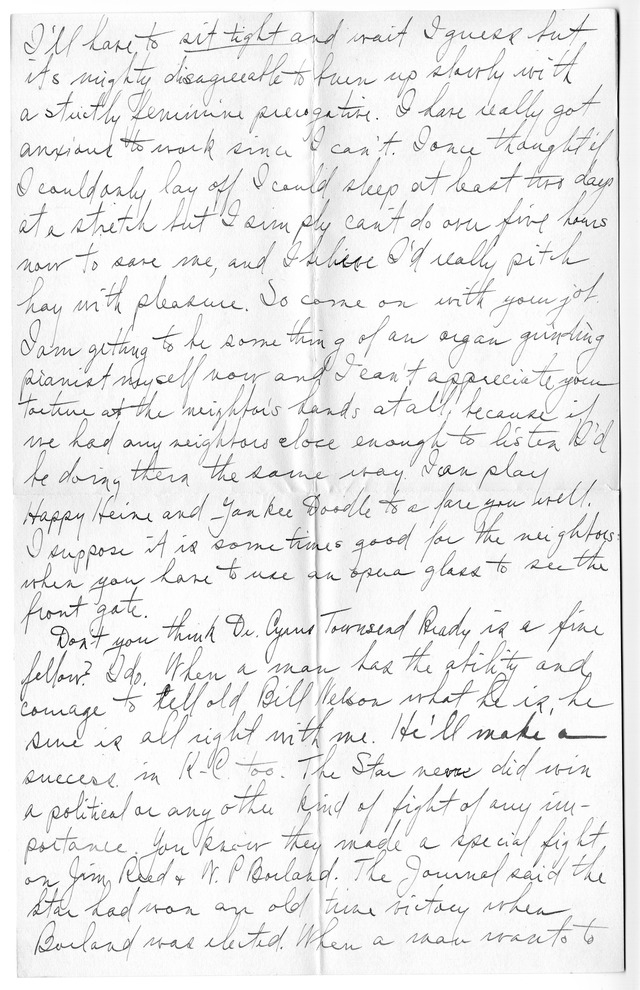 I'll have to sit tight and wait I guess but
its mighty disagreeable to burn up slowly with
a strictly feminine prerogative. I have really got
anxious to work since I can't. I once thought if
I could only lay off I could sleep at least two days
at a stretch but I simply can't do over five hours
now to save me, and I believe I'd really pitch
hay with pleasure. So come on with your job.
I am getting to be something of an organ grinding
pianist myself now and I can't appreciate your
torture at the neighbor's hands at all, because if
we had any neighbors close enough to listen I'd
be doing them the same way. I can play
Happy Heine and Yankee Doodle to a fare you well.
I suppose it is sometimes good for the neighbors
when you have to use an opera glass to see the
front gate.
Don't you think Dr. Cyrus Townsend Brady is a fine
fellow? I do. When a man has the ability and
courage to tell old Bill Nelson what he is, he
sure is all right with me. He'll make a
success in K-C. too. The Star never did win
a political or any other kind of fight of any im-
portance. You know they made a special fight
on Jim Reed & W. P Borland. The Journal said the
Star had won an old time victory when
Borland was elected. When a man wants to